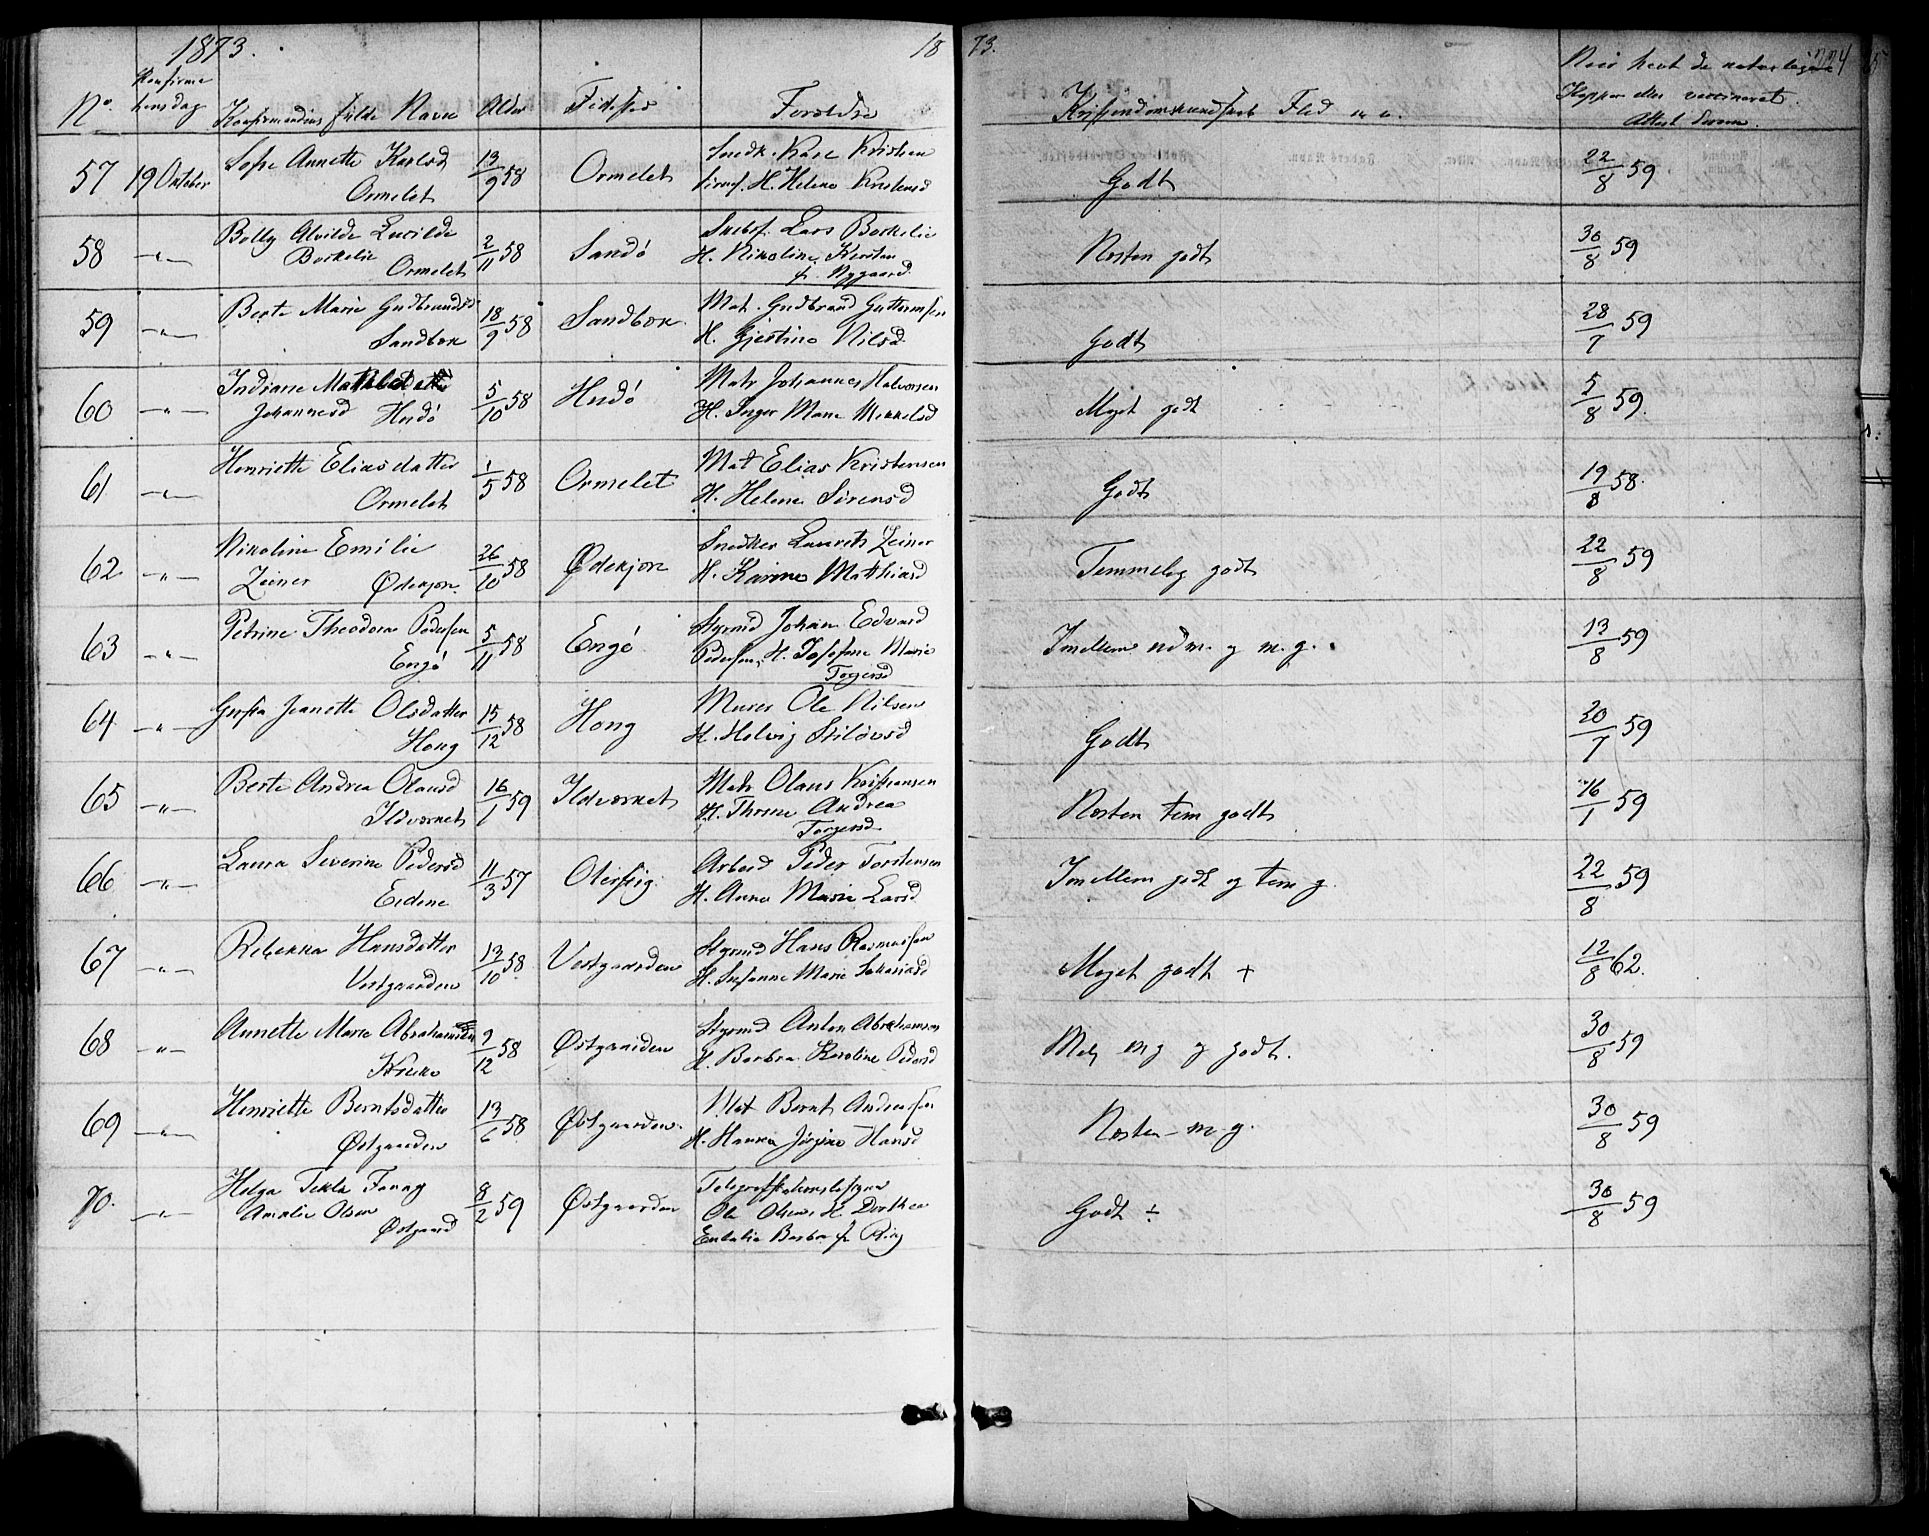 1873.
18 73.
Konfirma
No. tionsdag Konfirmandens fulde Navn Alder Fødested Forældre Kristendomskundskab Flid m. v. Naar havt de naturlige
Kopper eller vaccineret.
Attest derom.
57 19 Oktober Sofie Annette Karlsd 13/9 58 Ormelet Snedk. Karl Kristian Godt 22/8 59
Ormelet H. Helene Kristensd
58 -"- Bolly Alvilde Lucilde 2/11 58 Sandö Lars Borkelie Næsten godt 30/8 59
Borkelie Ormelet H. Nikoline Kirsten
f. Nygaard
59 -"- Berte Marie Gudbrandsd 18/9 58 Sandbæk Mat. Gudbrand Guttormsen Godt 28/7 59
Sandbæk H. Gjertine Nilsd
60 -"- Indiane Mathilde 5/10 58 Hudö Matr Johannes Halvorsen Meget godt 5/8 59.
Johannesd Hudö H. Inger Marie Mikkelsd
61 -"- Henriette Eliasdatter 1/5 58 Ormelet Mat Elias Kristensen Godt 19/8 58.
Ormelet H. Helene Sörensd
62 -"- Nikoline Emilie 26/10 58 Ødekjære Snedker Laurits Zeiner Temmelig godt 22/8 59
Zeiner Ødekjære H. Karine Mathiasd
63 -"- Petrine Theodora Pedersen 5/11 58 Engö Styrmd Johan Edvard Imellem udm. og m. g. 13/8 59
Engö Pedersen, H. Josefine Marie
Torgersd
64 -"- Jeanette Olsdatter 15/12 58 Houg Murer Ole Nilsen Godt 20/7 59
Houg H. Helvig
65 -"- Berte Andrea Olausd 16/1 59 Ildværnet Matr Olaus Kristiansen Næsten tem godt 16/1 59
Ildværnet H. Thrine Andrea
Torgersd
66 -"- Laura Severine Pedersd 11/3 57 Arbeid Peder Torstensen Imellem godt og tem g. 22/8 59
Eidene H. Anne Marie Larsd
67 -"- Rebekka Hansdatter 13/10 58 Vestgaarden Styrmd Hans Rasmussen Meget godt + 12/8 62.
Vestgaarden H. Susanne Marie Sakariasd
68 -"- Annette Marie Abrahamsen 9/12 58 Østgaarden Styrmd. Anton Abrahamsen Mel mg og godt. 30/8 59
Kruke H. Barbra Karoline Pedersd
69 -"- Henriette Berntsdatter 13/6 58 Østgaarden Mat Bernt Andersen Næsten m g. 30/8 59
Østgaarden H. Hanna Jörgine Hansd
70. -"- Helga Tekla Fanny 8/2 59 Østgaarden Telegrafstationsbestyrer Godt ÷ 30/8 59
Amalie Olsen Ole Olsen, H. Dorthea
Østgaard Eulalia Barbra f. Ring